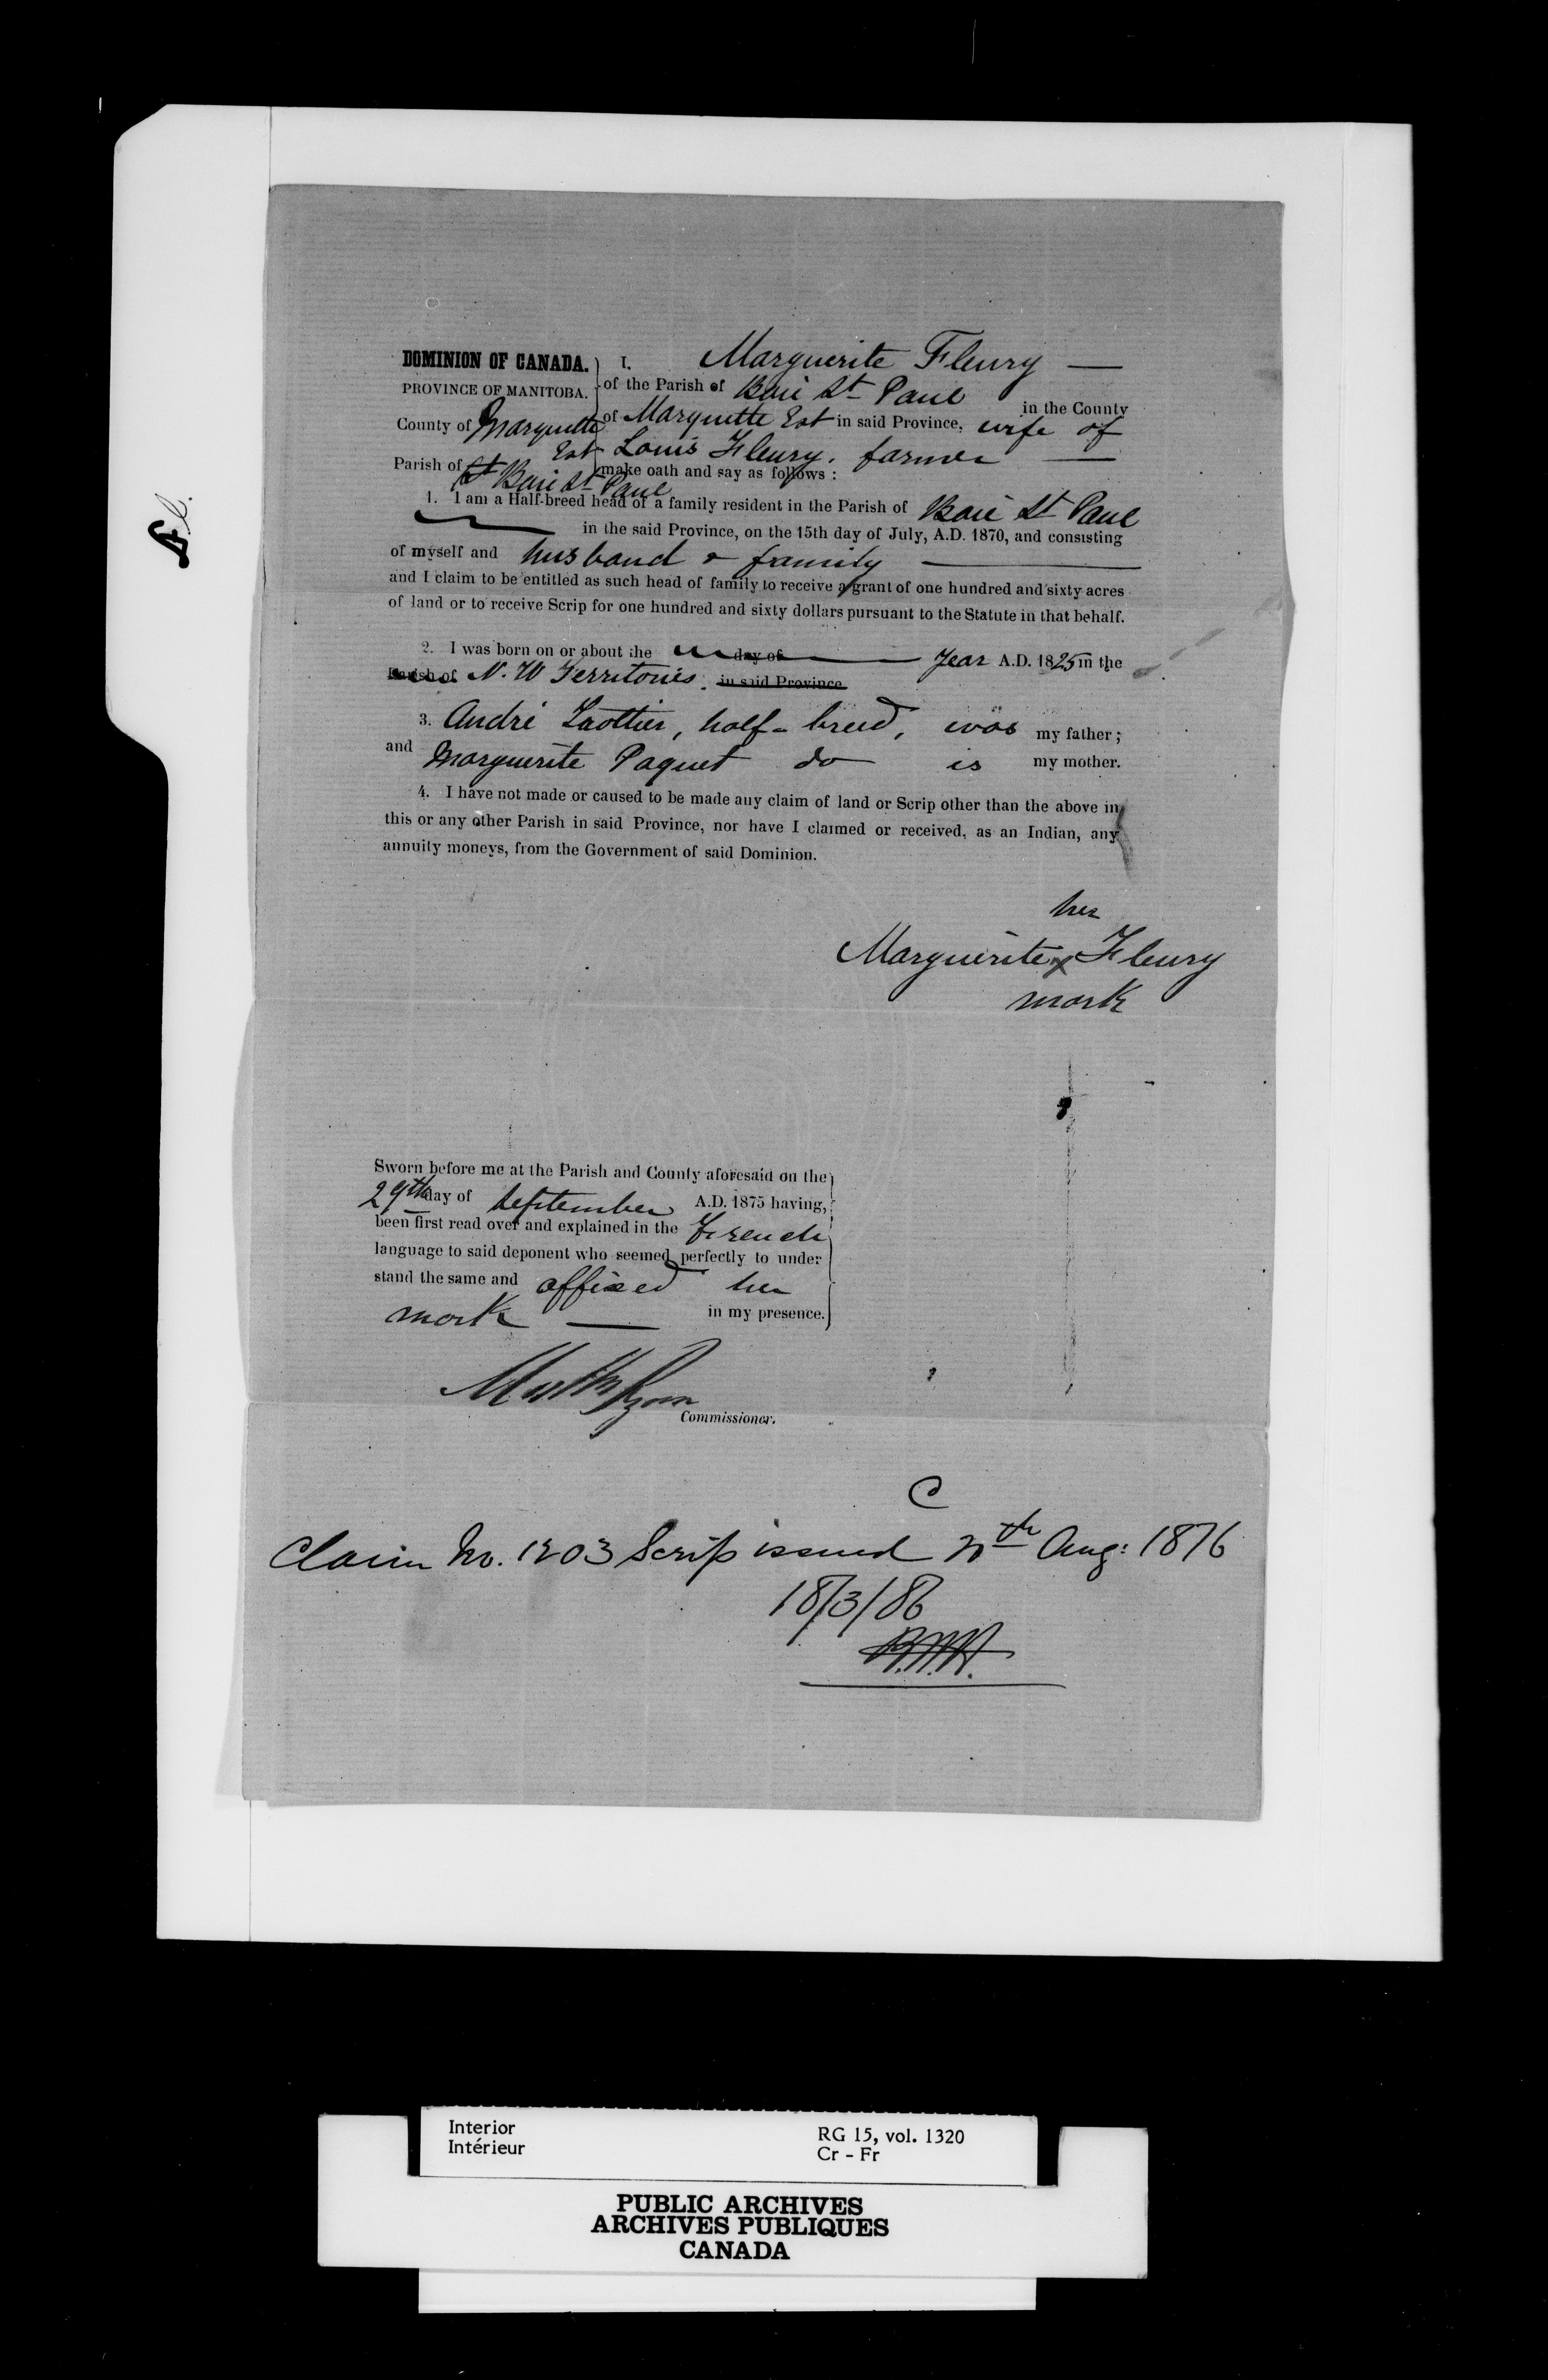 DOMINION OF CANADA. I, Marguerite Fleury —
PROVINCE OF MANITOBA. of the Parish of Baie St Paul in the County
County of Marquette Est of Marquette Est in said Province, wife of
Louis Fleury. farmer —
Parish of St Baie St Paul make oath and say as follows :
1. I am a Half-breed head of a family resident in the Parish of Baie St Paul
in the said Province, on the 15th day of July, A.D. 1870, and consisting
of myself and husband & family
and I claim to be entitled as such head of family to receive a grant of one hundred and sixty acres
of land or to receive Scrip for one hundred and sixty dollars pursuant to the Statute in that behalf.
2. I was born on or about the day of year A.D. 1825 in the
Parish of N. W Territories. in said Province
3. André Trottier, half-breed, was my father ;
and Marguerite Paquet do is my mother.
4. I have not made or caused to be made any claim of land or Scrip other than the above in
this or any other Parish in said Province, nor have I claimed or received, as an Indian, any
annuity moneys, from the Government of said Dominion.
her
Marguerite x Fleury
mark
Sworn before me at the Parish and County aforesaid on the
29th day of September A.D. 1875 having,
been first read over and explained in the French
language to said deponent who seemed perfectly to under
stand the same and affixed her
mark — in my presence.
Matth Ryan
Commissioner.
C
Claim No. 1203 Scrip issued 20th Aug: 1876
18/3/86
Interior
Intérieur
RG 15, vol. 1320
Cr - Fr
PUBLIC ARCHIVES
ARCHIVES PUBLIQUES
CANADA